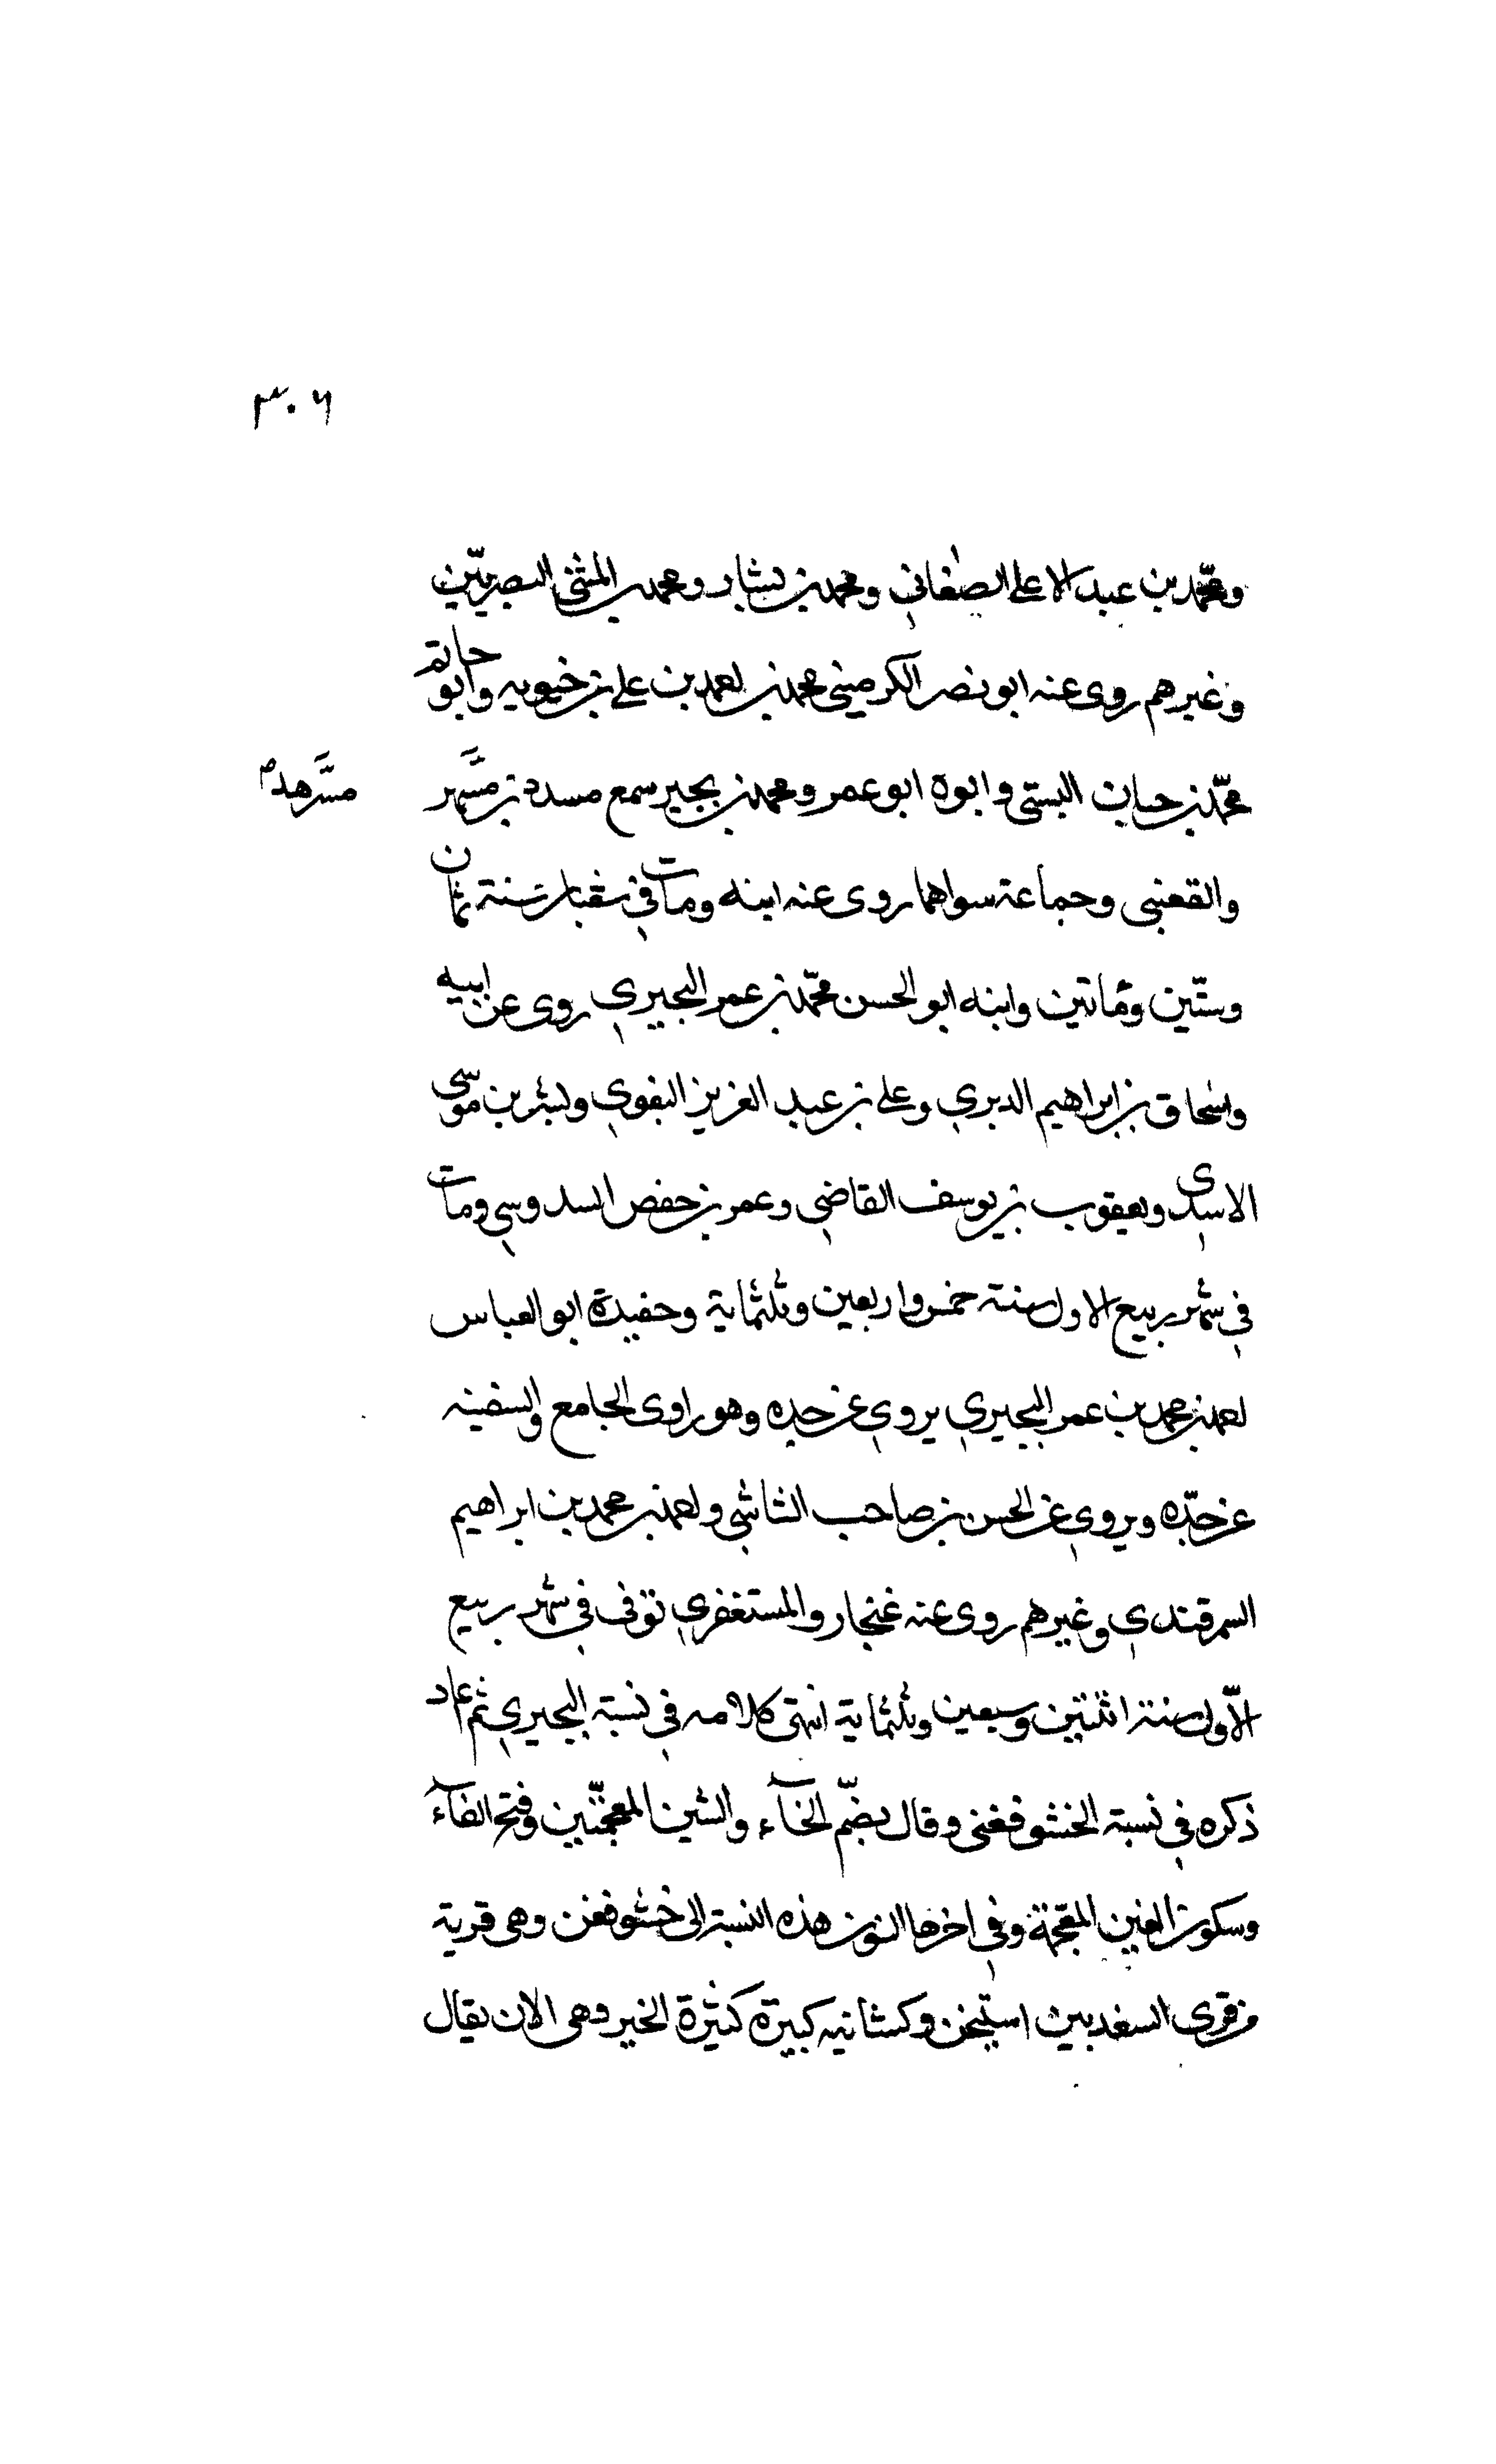 ٣٠٦
ومحمد بن عبد الاعلى الصنعاني ومحمد بن بشار ومحمد بن المثنى البصريين
وغيرهم روى عنه ابو نصر الكرميني محمد بن احمد بن علي بن خيويه وابو حاتم
محمد بن حبان البستي وابوه ابو عمر ومحمد بن بجير سمع مسدد بن مسرهد
مسرهد
والقعنبي وجماعة سواهما روى عنه ابنه ومات في شعبان سنة ثمان
وستين ومأتين وابنه ابو الحسن محمد بن عمر البجيري روى عن ابيه
واسحاق بن ابراهيم الدبري وعلي بن عبد العزيز البغوي وبشر بن موسى
الاسدي ويعقوب بن يوسف القاضي وعمر بن حفص السدوسي ومات
في شهر ربيع الاول سنة خمس واربعين وثلثماية وحفيده ابو العباس
احمد بن محمد بن عمر البجيري يروي عن جده وهو راوى الجامع والسفينه
عن جده ويروي عن الحسن بن صاحب الشاشي واحمد بن محمد بن ابراهيم
السمرقندي وغيرهم روى عنه غنجار والمستغفري توفى في شهر ربيع
الاول سنة اثنتين وسبعين وثلثماية انتهى كلامه في نسبة البجيري ثم عاد
ذكره في نسبة الخشوفغني وقال بضم الخآء والشين المعجمتين وفتح الفآء
وسكون الغين المعجمة وفي اخرها النون هذه النسبة الى خشوفغن وهى قرية
من قرى السغد بين استيخن وكشانيه كبيرة كثيرة الخير وهى الان يقال